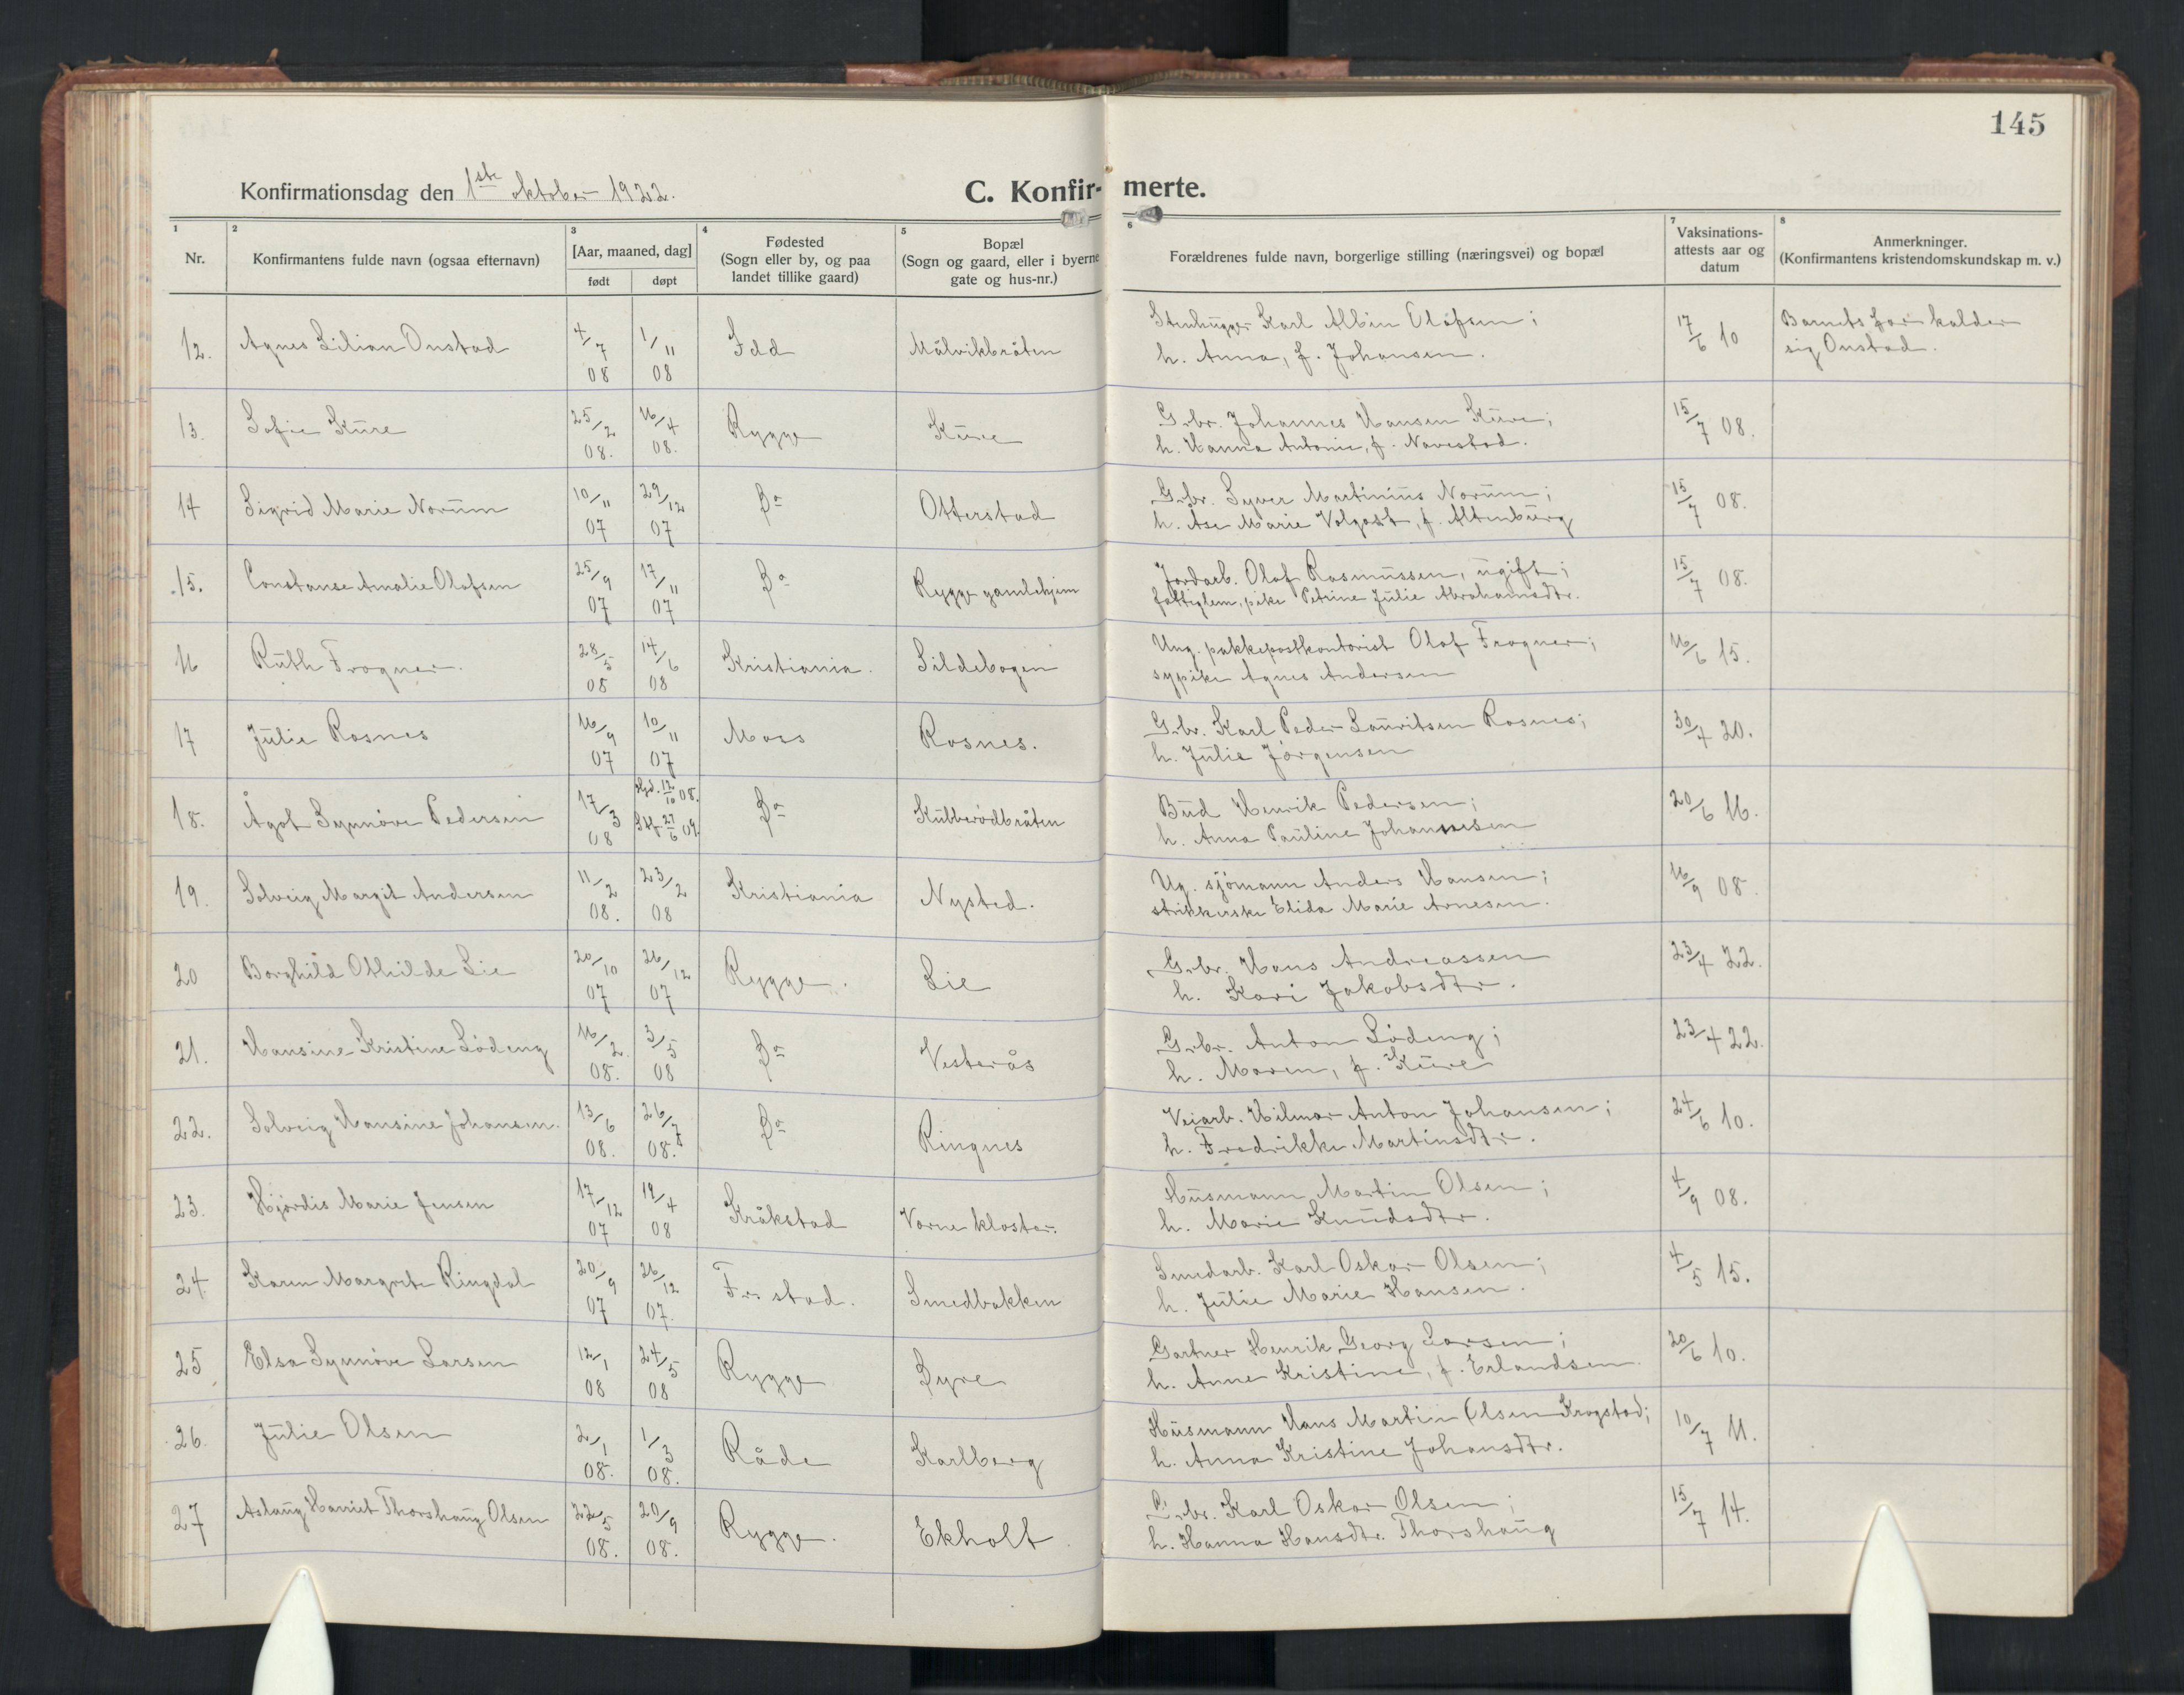 145
Konfirmationsdag den 1ste oktober 1922. C. Konfir- merte.
1 2 3 4 5 6 7 8
Nr. Konfirmantens fulde navn (ogsaa efternavn) [Aar, maaned, dag] født døpt Fødested (Sogn eller by, og paa landet tillike gaard) Bopæl (Sogn og gaard, eller i byerne gate og hus-nr.) Forældrenes fulde navn, borgerlige stilling (næringsvei) og bopæl Vaksinations-attests aar og datum Anmerkninger. (Konfirmantens kristendomskundskap m. v.)
12. Agnes Lilian Onstad 4/7 08 1/11 08 Idd Målvikbråten Stenhugger Karl Albin Olafsen; 17/6 10 Barnets far kalder
h. Anna, f. Johansen. sig Onstad.
13. Sofie Kure 25/2 08. 16/4 08. Rygge Kure Grbr. Johannes Hansen Kure; 15/7 08.
h. Hanna Antonie, f. Navestad.
14 Sigrid Marie Norum 10/11 07 29/12 07 Do Otterstad Grbr. Syver Martinius Norum; 15/7 08.
h. Ase Marie Volgast, f. Altenburg
15. Constanse Amalie Olafsen 25/9 07 17/11 07 Do Rygge gamlehjem Jordarb. Olaf Rasmussen, ugift; 15/7 08.
fattiglem, pike Petrine Julie Abrahamsdtr.
16 Ruth Frogner. 28/5 08 14/6 08 Kristiania. Sildebogen Ung. pakkepostkontorist Olaf Frogner; 16/6 15.
sypike Agnes Andersen
17 Julie Rosnes 16/9 07 10/11 07 Moss Rosnes. Grbr. Karl Peder Lauritsen Rosnes; 30/4 20.
h. Julie Jørgensen
18. Ågot Synnøve Pedersen 17/3 08 Hjd. 12/10 08. Stf. 27/6 09. Do Kubberødbråten Bud Henrik Pedersen; 20/6 16.
h. Anna Pauline Johannesen
19. Solveig Margit Andersen 11/2 08. 23/2 08 Kristiania Nysted. Ug. sjømann Anders Hansen; 16/9 08.
strikkerske Elida Marie Arnesen.
20 Borghild Othilde Lie 20/10 07 26/12 07 Rygge. Lie Grbr. Hans Andreassen 23/4 22.
h. Kari Jakobsdtr.
21. Hansine Kristine Lødeng 16/2. 08. 3/5 08 Do Vesterås Grbr. Anton Lødeng; 23/4 22.
h. Maren, f. Kure
22. Solveig Hansine Johansen. 13/6 08. 26/7 08. Do Ringnes Veiarb. Hilmar Anton Johansen; 24/6 10.
h. Fredrikke Martinsdtr.
23. Hjørdis Marie Jensen 17/12 07 19/4 08 Kråkstad Varne kloster. Husmann Martin Olsen; 4/9 08.
h. Marie Knudsdtr.
24. Karen Margrete Ringdal 20/9 07 26/12 07. Fr. stad. Smedbakken Smedarb. Karl Oskar Olsen; 4/5 15.
h. Julie Marie Hansen.
25 Elsa Synnøve Larsen 12/1 08 24/5 08 Rygge Dyre Gartner Henrik Georg Larsen; 20/6 10.
h. Anne Kristine, f. Erlandsen.
26. Julie Olsen 2/1 08. 1/3 08. Råde Karlberg Husmann Hans Martin Olsen Krogstad; 10/7 11.
h. Anna Kristine Johansdtr.
27 Aslaug Harriet Thorshaug Olsen 22/5 08. 20/9 08. Rygge. Ekholt Grbr. Karl Oskar Olsen; 15/7 14.
h. Hanna Hansdtr. Thorshaug